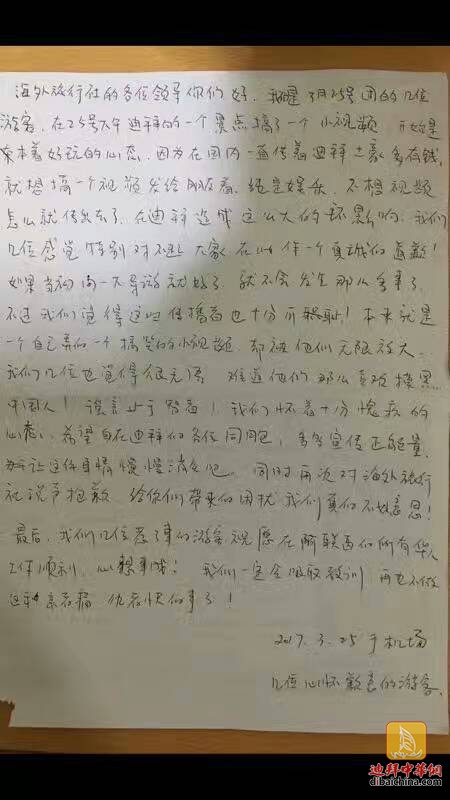 海外旅行社的各位领导你们好，我是3月25号团的几位
游客，在25号下午迪拜的一个景点搞了一个小视频 开始是
本着好玩的心态，因为在国内一直传着迪拜土豪多有钱，
就想搞一个视频发给朋友看，纯是娱乐，不想视频
怎么就传出去了，在迪拜造成这么大的坏影响，我们
几位感觉特别对不起大家 在此作一个真诚的道歉！
如果当初问一下导游就好了，就不会发生那么多事了
不过我们觉得这些传播者也十分可耻！本来就是
一个自己弄的一个搞笑的小视频，却被他们无限放大，
我们几位也觉得很无语 难道他们那么喜欢摸黑
中国人！谣言止于智者！我们怀着十分愧疚的
心态，希望在迪拜的各位同胞，多多宣传正能量，
让这件事情慢慢消失吧，同时再次对海外旅行
社说声抱歉 给你们带来的困扰我们真的不好意思！
最后，我们几位惹了事的游客祝愿在阿联酋的所有华人
工作顺利，心想事成！ 我们一定会吸取教训 再也不做
这种亲者痛 仇者快的事了！
2017.3.25 于机场
几位心怀歉意的游客，
迪拜中华网
dibaichina.com